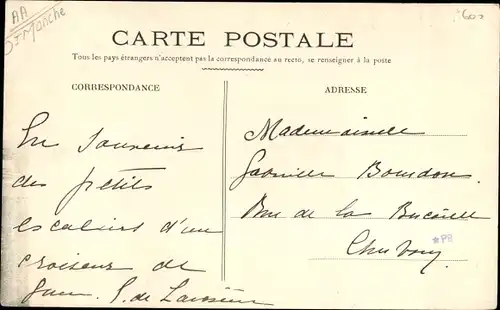 AA
Dt Manche
602
CARTE POSTALE
Tous les pays étrangers n'acceptent pas la correspondance au recto, se renseigner à la poste
CORRESPONDANCE
ADRESSE
En souvenir
des petits
escaliers d'un
croiseur de
S. de
Mademoiselle
Bourdon
Rue de la Bucaille
Cherbourg
*PB